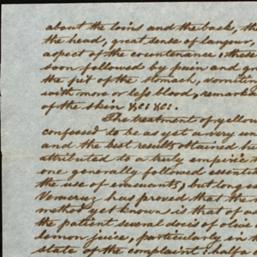 about the loins and the back, the
the head, great sense of languor,
aspect of the countenance; these
soon followed by pain and
the pit of the stomach, vomiting
with more or less blood, remarka
of the skin &c; &c.
The treatment of yellow
confessed to be as yet a very un
and the best results obtained be
attributed to a truly empiric
one generally followed essential
the use of emeuants; but long
Veracruz has proved that the
method yet known is that of
the patient several doses of olive
lemon juice, particularly in
state of the complaint: half a